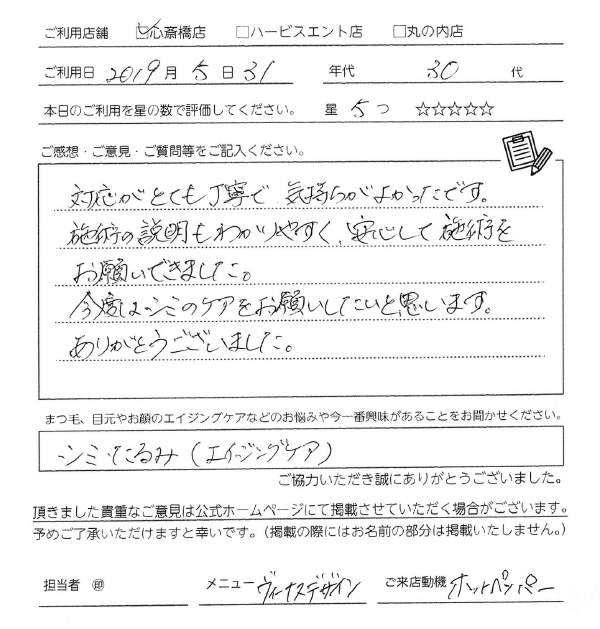 ご利用店舗 ☑心斎橋店 □ハービスエント店 □丸の内店
ご利用日 2019月 5日 31 年代 30 代
本日のご利用を星の数で評価してください。 星 5つ ☆☆☆☆☆
ご感想・ご意見・ご質問等をご記入ください。
対応がとても丁寧で 気持ちがよかったです。
施術の説明もわかりやすく、安心して施術を
お願いできました。
今度はシミのケアをお願いしたいと思います。
ありがとうございました。
まつ毛、目元やお顔のエイジングケアなどのお悩みや今一番興味があることをお聞かせください。
シミ・たるみ(エイジングケア)
ご協力いただき誠にありがとうございました。
頂きました貴重なご意見は公式ホームページにて掲載させていただく場合がございます。
予めご了承いただけますと幸いです。(掲載の際にはお名前の部分は掲載いたしません。)
担当者 ㊞ メニュー ヴィーナスデザイン ご来店動機 ホットペッパー